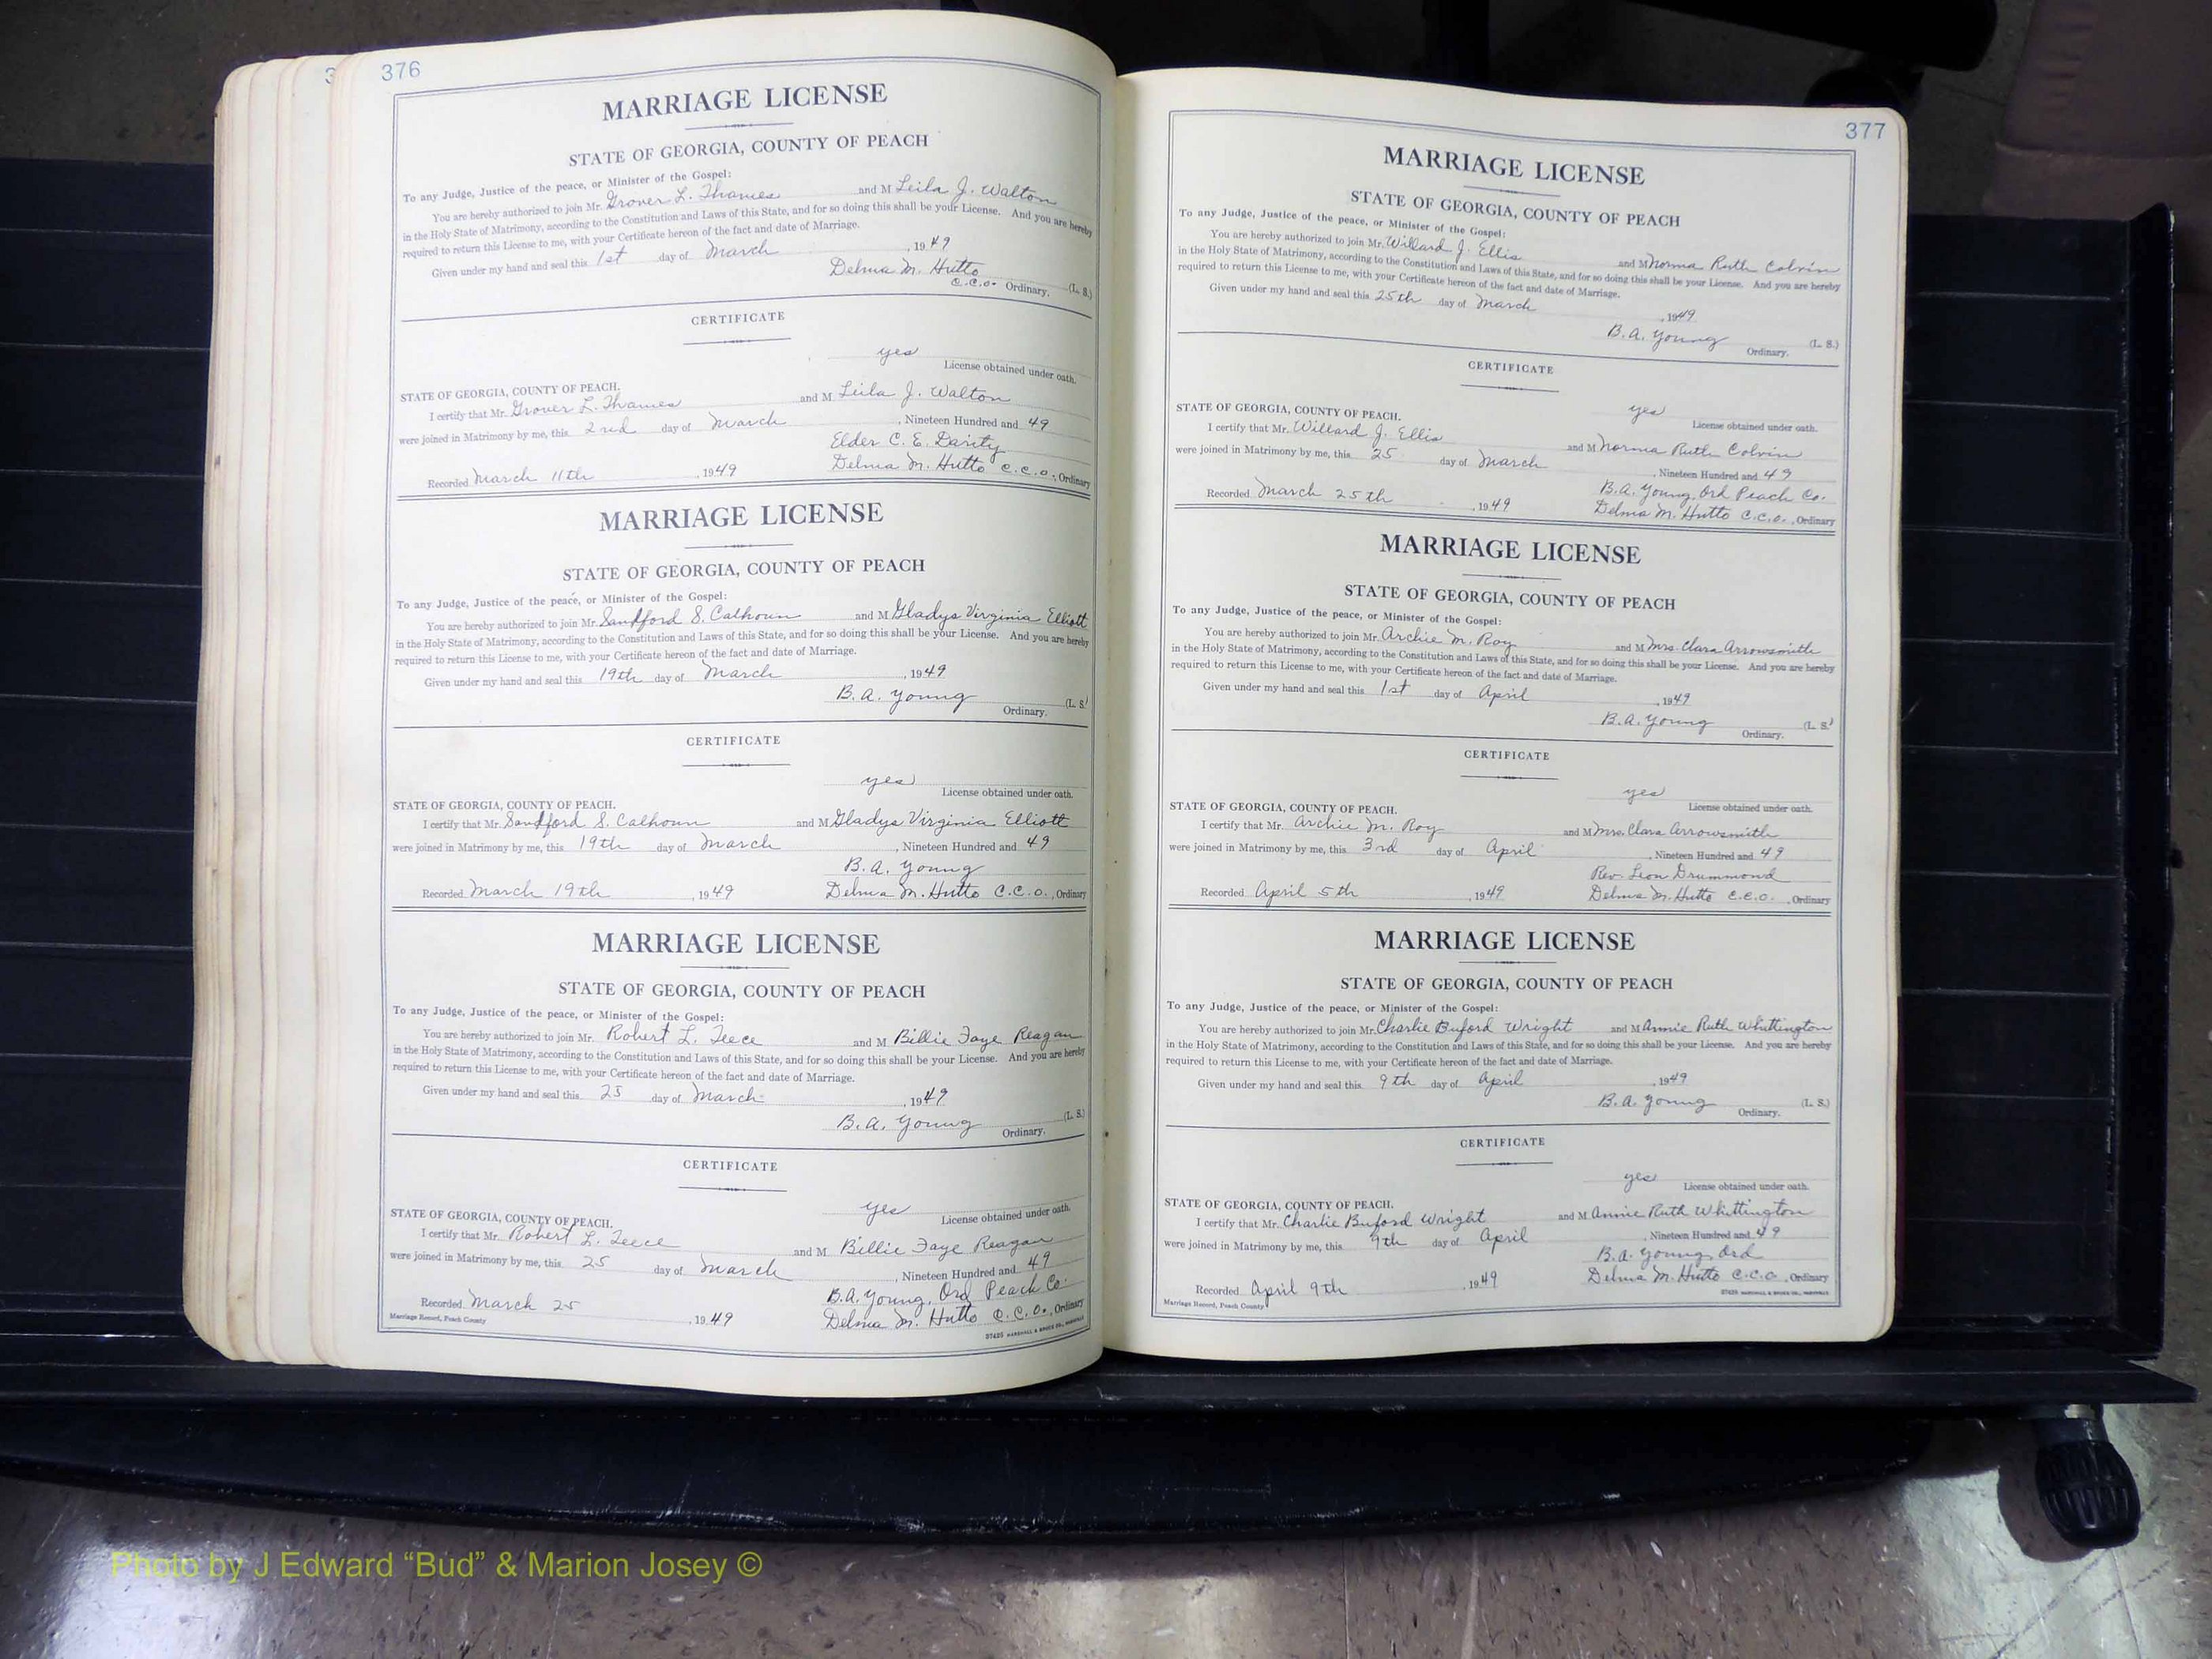 3
376
MARRIAGE LICENSE
STATE OF GEORGIA, COUNTY OF PEACH
To any Judge, Justice of the peace, or Minister of the Gospel:
You are hereby authorized to join Mr. Grover L. Thames and M Leila J. Walton
in the Holy State of Matrimony, according to the Constitution and Laws of this State, and for so doing this shall be your License. And you are hereby
required to return this License to me, with your Certificate hereon of the fact and date of Marriage.
Given under my hand and seal this 1st day of March, 1949
Delma M. Hutto
C.C.O. Ordinary. (L. S.)
CERTIFICATE
yes
License obtained under oath.
STATE OF GEORGIA, COUNTY OF PEACH.
I certify that Mr. Grover L. Thames and M Leila J. Walton
were joined in Matrimony by me, this 2nd day of March, Nineteen Hundred and 49
Elder C. E. Danity
Recorded March 11th, 1949 Delma M. Hutto C.C.O., Ordinary
MARRIAGE LICENSE
STATE OF GEORGIA, COUNTY OF PEACH
To any Judge, Justice of the peace, or Minister of the Gospel:
You are hereby authorized to join Mr. Sandford S. Calhoun and M Gladys Virginia Elliott
in the Holy State of Matrimony, according to the Constitution and Laws of this State, and for so doing this shall be your License. And you are hereby
required to return this License to me, with your Certificate hereon of the fact and date of Marriage.
Given under my hand and seal this 19th day of March, 1949
B. A. Young (L. S.)
Ordinary.
CERTIFICATE
yes
License obtained under oath.
STATE OF GEORGIA, COUNTY OF PEACH.
I certify that Mr. Sandford S. Calhoun and M Gladys Virginia Elliott
were joined in Matrimony by me, this 19th day of March, Nineteen Hundred and 49
B. A. Young
Recorded March 19th, 1949 Delma M. Hutto C.C.O., Ordinary
MARRIAGE LICENSE
STATE OF GEORGIA, COUNTY OF PEACH
To any Judge, Justice of the peace, or Minister of the Gospel:
You are hereby authorized to join Mr. Robert L. Teece and M Billie Faye Reagan
in the Holy State of Matrimony, according to the Constitution and Laws of this State, and for so doing this shall be your License. And you are hereby
required to return this License to me, with your Certificate hereon of the fact and date of Marriage.
Given under my hand and seal this 25 day of March, 1949
B. A. Young (L. S.)
Ordinary.
CERTIFICATE
yes
License obtained under oath.
STATE OF GEORGIA, COUNTY OF PEACH.
I certify that Mr. Robert L. Teece and M Billie Faye Reagan
were joined in Matrimony by me, this 25 day of March, Nineteen Hundred and 49
B. A. Young, Ord Peach Co.
Recorded March 25, 1949 Delma M. Hutto C.C.O., Ordinary
Marriage Record, Peach County 37425 MARSHALL & BRUCE CO., NASHVILLE
377
MARRIAGE LICENSE
STATE OF GEORGIA, COUNTY OF PEACH
To any Judge, Justice of the peace, or Minister of the Gospel:
You are hereby authorized to join Mr. Willard J. Ellis and M Norma Ruth Colvin
in the Holy State of Matrimony, according to the Constitution and Laws of this State, and for so doing this shall be your License. And you are hereby
required to return this License to me, with your Certificate hereon of the fact and date of Marriage.
Given under my hand and seal this 25th day of March, 1949
B. A. Young (L. S.)
Ordinary.
CERTIFICATE
yes
License obtained under oath.
STATE OF GEORGIA, COUNTY OF PEACH.
I certify that Mr. Willard J. Ellis and M Norma Ruth Colvin
were joined in Matrimony by me, this 25 day of March, Nineteen Hundred and 49
B. A. Young, Ord Peach Co.
Recorded March 25th, 1949 Delma M. Hutto C.C.O., Ordinary
MARRIAGE LICENSE
STATE OF GEORGIA, COUNTY OF PEACH
To any Judge, Justice of the peace, or Minister of the Gospel:
You are hereby authorized to join Mr. Archie M. Roy and M Mrs. Clara Arrowsmith
in the Holy State of Matrimony, according to the Constitution and Laws of this State, and for so doing this shall be your License. And you are hereby
required to return this License to me, with your Certificate hereon of the fact and date of Marriage.
Given under my hand and seal this 1st day of April, 1949
B. A. Young (L. S.)
Ordinary.
CERTIFICATE
yes
License obtained under oath.
STATE OF GEORGIA, COUNTY OF PEACH.
I certify that Mr. Archie M. Roy and M Mrs. Clara Arrowsmith
were joined in Matrimony by me, this 3rd day of April, Nineteen Hundred and 49
Rev. Leon Drummond
Recorded April 5th, 1949 Delma M. Hutto C.C.O., Ordinary
MARRIAGE LICENSE
STATE OF GEORGIA, COUNTY OF PEACH
To any Judge, Justice of the peace, or Minister of the Gospel:
You are hereby authorized to join Mr. Charlie Buford Wright and M Annie Ruth Whittington
in the Holy State of Matrimony, according to the Constitution and Laws of this State, and for so doing this shall be your License. And you are hereby
required to return this License to me, with your Certificate hereon of the fact and date of Marriage.
Given under my hand and seal this 9th day of April, 1949
B. A. Young (L. S.)
Ordinary.
CERTIFICATE
yes
License obtained under oath.
STATE OF GEORGIA, COUNTY OF PEACH.
I certify that Mr. Charlie Buford Wright and M Annie Ruth Whittington
were joined in Matrimony by me, this 9th day of April, Nineteen Hundred and 49
B. A. Young, Ord
Recorded April 9th, 1949 Delma M. Hutto C.C.O., Ordinary
Marriage Record, Peach County 37425 MARSHALL & BRUCE CO., NASHVILLE
Photo by J Edward “Bud” & Marion Josey ©